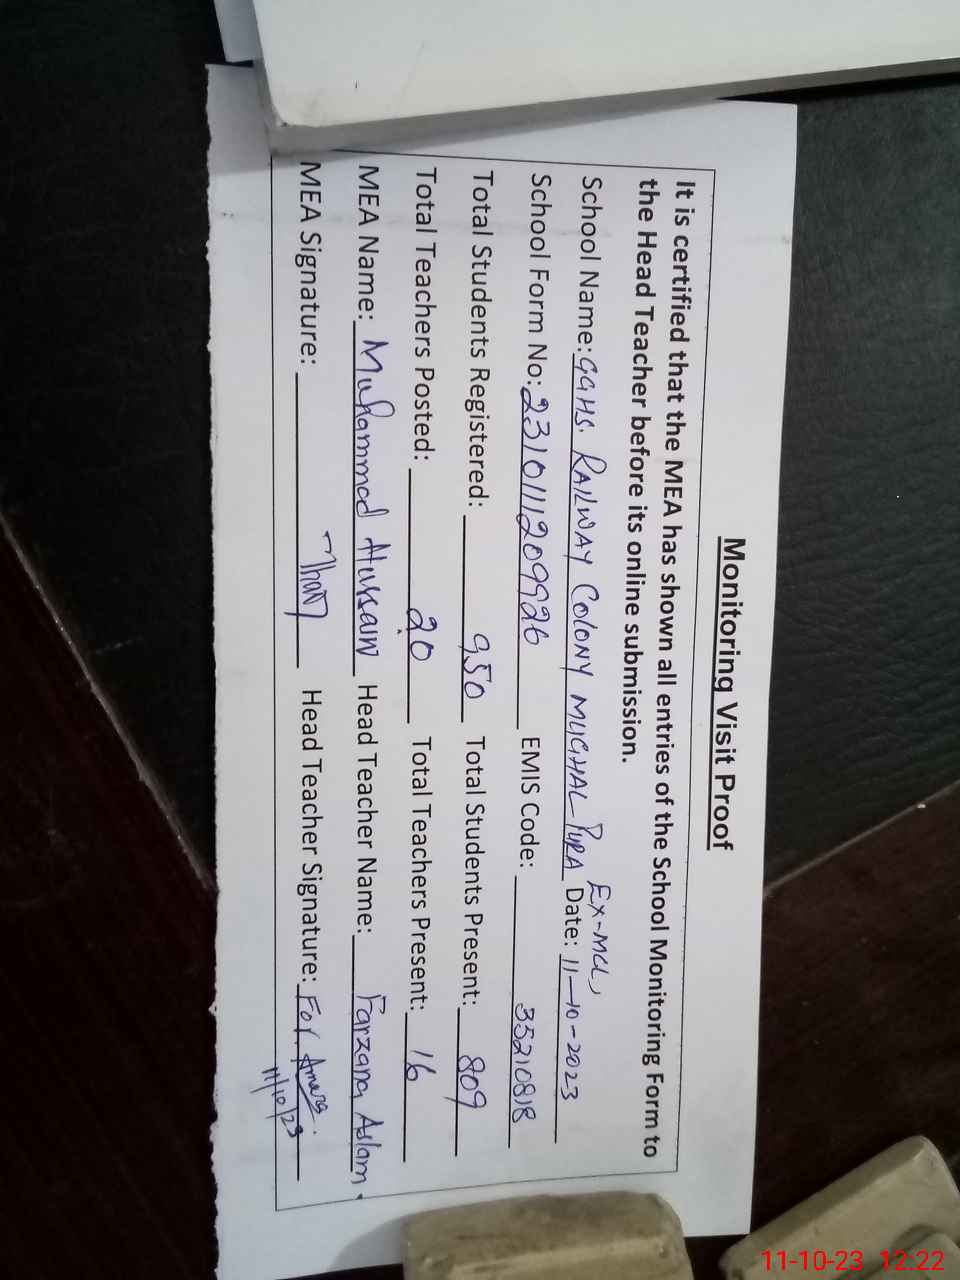 Monitoring Visit Proof
It is certified that the MEA has shown all entries of the School Monitoring Form to
the Head Teacher before its online submission.
EX-MCL,
School Name: GGHS. RAILWAY COLONY MUGHAL PURA Date: 11-10-2023
School Form No: 231011209926 EMIS Code: 35210818
Total Students Registered: 950 Total Students Present: 809
Total Teachers Posted: 20 Total Teachers Present: 16
MEA Name: Muhammad Hussain Head Teacher Name: Farzana Aslam.
MEA Signature: Head Teacher Signature: For.
11/10/23
11-10-23 12:22